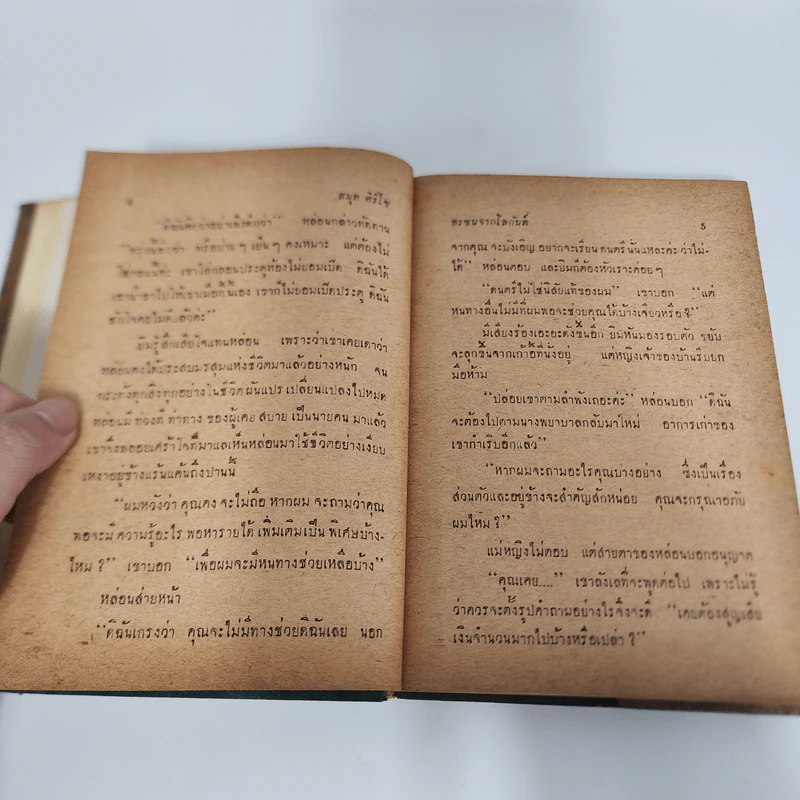 ๔ สมุท ศิริไข
"ดิฉันคิดว่าอย่าดีกว่า" หล่อนกล่าวทัดทาน
พรือบ่ายๆ เย็นๆ คงเหมาะ แต่ต้องไม่
เขาใส่กลอนประตูห้องไม่ยอมเปิด ดิฉันได้
เอาน้ำชาไปให้เขาเมื่อกี้นี้เอง เขาก็ไม่ยอมเปิดประตู ดิฉัน
ชักใจคอไม่ดีแล้วค่ะ"
ยิมรู้สึกเสียใจแทนหล่อน เพราะว่าเขาเคยเดาว่า
หล่อนคงได้ประสบมรสุมแห่งชีวิตมาแล้วอย่างหนัก จน
กระทั่งทุกสิ่งทุกอย่างในชีวิตผันแปรเปลี่ยนแปลงไปหมด
หล่อนมีท่วงที ท่าทาง ของผู้เคยสบายเป็นนายคน มาแล้ว
เขาจึงพลอยเศร้าใจที่มาแลเห็นหล่อนมาใช้ชีวิตอย่างเงียบ
เหงาอยู่ข้างแร้นแค้นถึงปานนี้
"ผมหวังว่า คุณคงจะไม่ถือ หากผม จะถามว่าคุณ
พอจะมีความรู้อะไร พอหารายได้เพิ่มเติมเป็นพิเศษบ้าง-
ไหม ?" เขาบอก "เพื่อผมจะมีหนทางช่วยเหลือบ้าง"
หล่อนส่ายหน้า
"ดิฉันเกรงว่า คุณจะไม่มีทางช่วยดิฉันเลย นอก
ทรชนจากโลกันต์ 5
จากคุณ จะบังเอิญ อยากจะเรียน ดนตรีนั่นแหละค่ะ ว่าไม่-
ได้" หล่อนตอบ และยิมก็ต้องหัวเราะค่อยๆ
"ดนตรีไม่ใช่นิสัยแท้ของผม" เขาบอก "แต่
หนทางอื่นไม่มีที่ผมพอจะช่วยคุณได้บ้างเจียวหรือ ?"
มีเสียงร้องเอะอะดังขึ้นอีก ยิมหันมองรอบตัว ขยับ
จะลุกขึ้นจากเก้าอี้ที่นั่งอยู่ แต่หญิงเจ้าของบ้านรีบยก
มือห้าม
"ปล่อยเขาตามลำพังเถอะค่ะ" หล่อนบอก "ดิฉัน
จะต้องไปตามนางพยาบาลกลับมาใหม่ อาการเก่าของ
เขากำเริบอีกแล้ว"
"หากผมจะถามอะไรคุณบางอย่าง ซึ่งเป็นเรื่อง
ส่วนตัวและอยู่ข้างจะสำคัญสักหน่อย คุณจะกรุณาอภัย
ผมไหม ?"
แม่หญิงไม่ตอบ แต่สายตาของหล่อนบอกอนุญาต
"คุณเคย...." เขาลังเลที่จะพูดต่อไป เพราะไม่รู้
ว่าควรจะตั้งรูปคำถามอย่างไรจึงจะดี "เคยต้องสูญเสีย
เงินจำนวนมากไปบ้างหรือเปล่า ?"